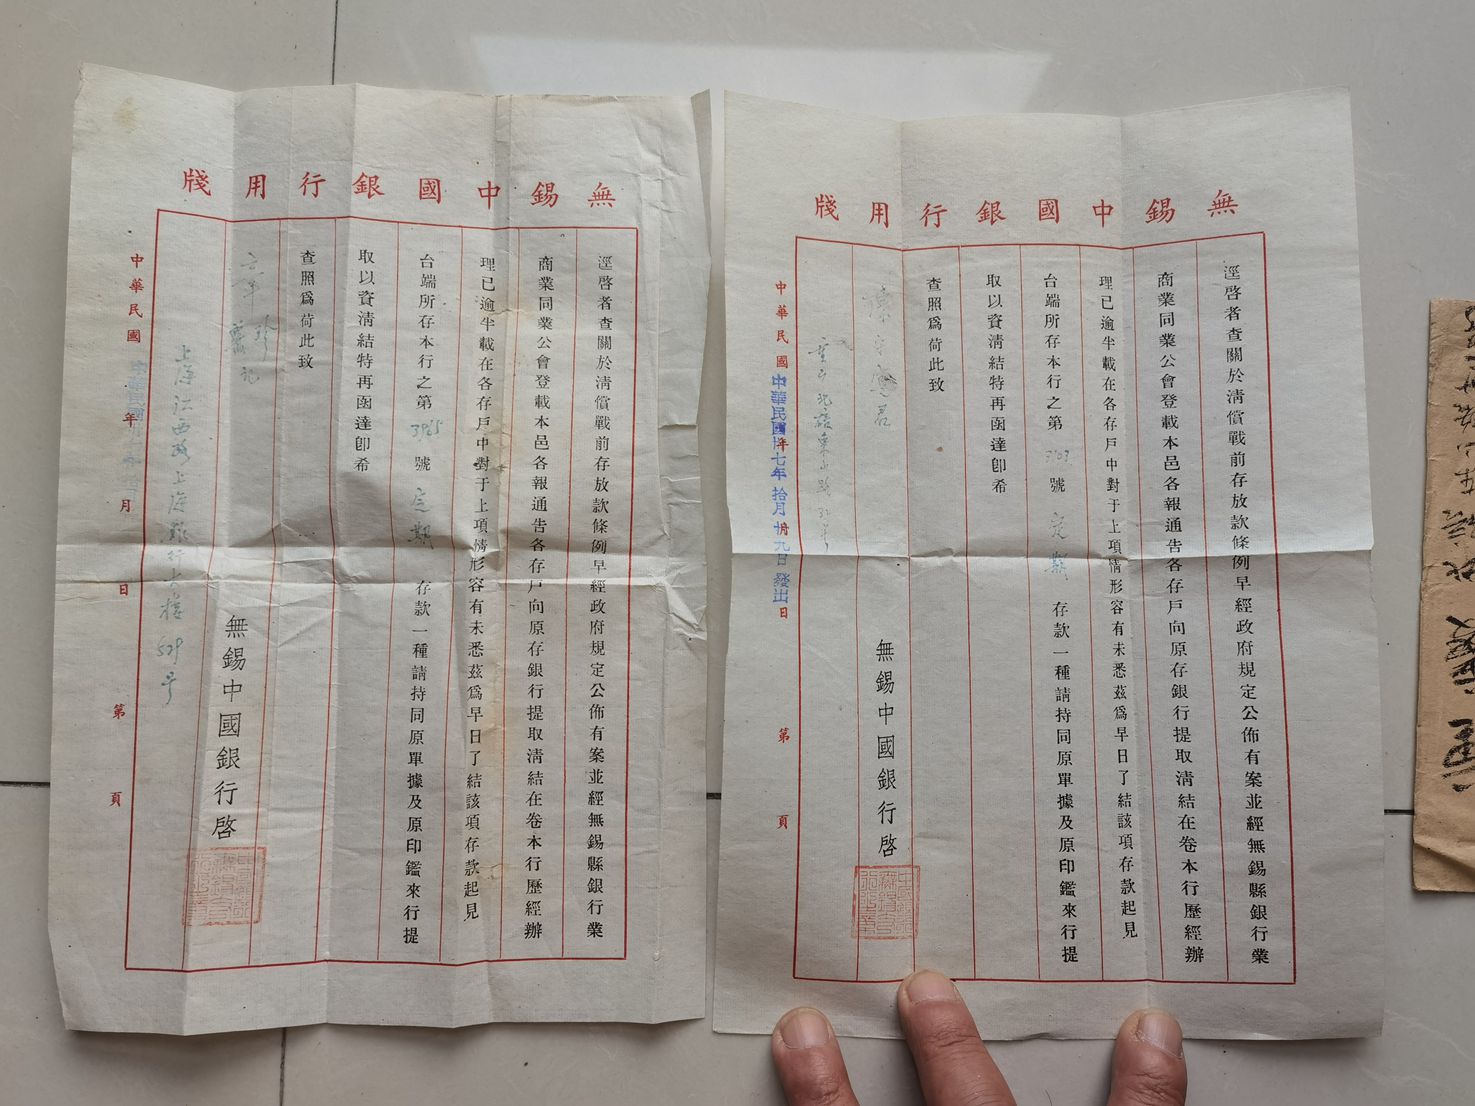 無錫中國銀行用牋
逕啓者查關於清償戰前存放款條例早經政府規定公佈有案並經無錫縣銀行業
商業同業公會登載本邑各報通告各存戶向原存銀行提取清結在卷本行歷經辦
理已逾半載在各存戶中對于上項情形容有未悉茲爲早日了結該項存款起見
台端所存本行之第 3703 號 定期 存款一種請持同原單據及原印鑑來行提
取以資清結特再函達卽希
查照爲荷此致
無錫中國銀行啓
中華民國 年 月 日
中華民國卅七年拾月廿九日發出
第 頁
無錫中國銀行用牋
逕啓者查關於清償戰前存放款條例早經政府規定公佈有案並經無錫縣銀行業
商業同業公會登載本邑各報通告各存戶向原存銀行提取清結在卷本行歷經辦
理已逾半載在各存戶中對于上項情形容有未悉茲爲早日了結該項存款起見
台端所存本行之第 3965 號 定期 存款一種請持同原單據及原印鑑來行提
取以資清結特再函達卽希
查照爲荷此致
上海江西路上海銀行大樓 509号
無錫中國銀行啓
中華民國 年 月 日
第 頁